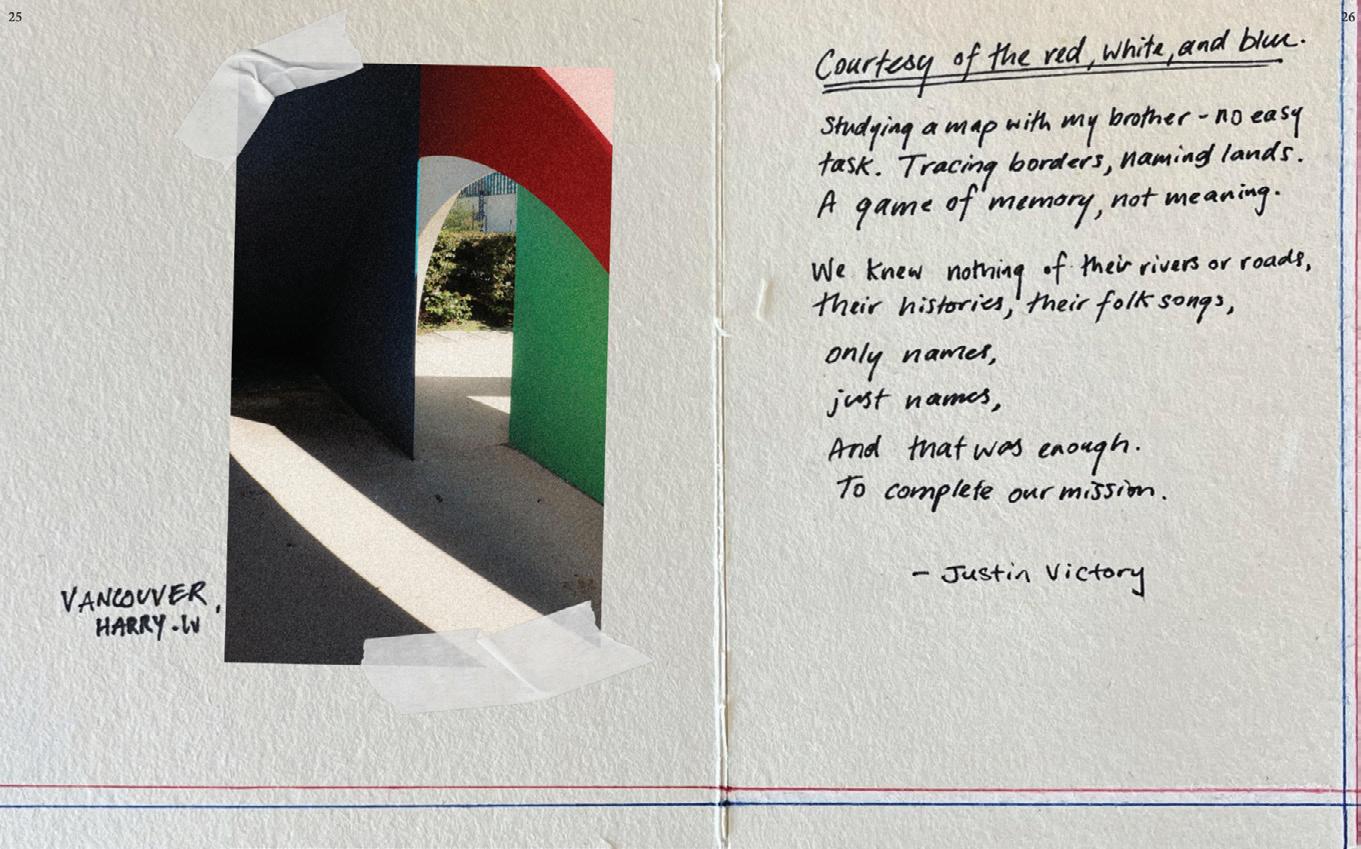 25
VANCOUVER,
HARRY.LV
26
Courtesy of the red, white, and blue.
Studying a map with my brother - no easy
task. Tracing borders, naming lands.
A game of memory, not meaning.
We knew nothing of their rivers or roads,
their histories, their folk songs,
only names,
just names,
And that was enough.
To complete our mission.
- Justin Victory